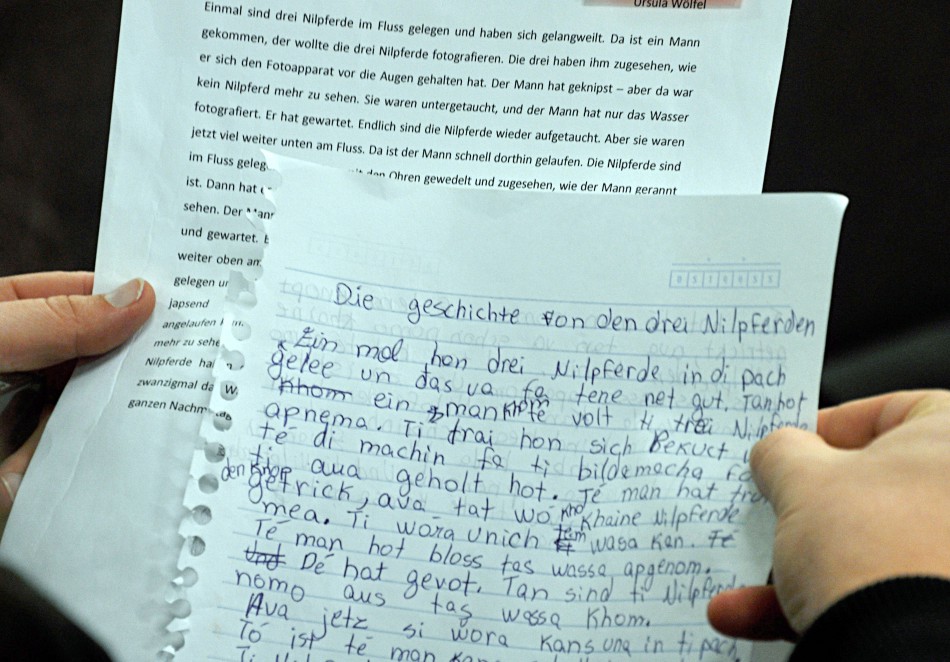 Ursula Wölfel
Einmal sind drei Nilpferde im Fluss gelegen und haben sich gelangweilt. Da ist ein Mann
gekommen, der wollte die drei Nilpferde fotografieren. Die drei haben ihm zugesehen, wie
er sich den Fotoapparat vor die Augen gehalten hat. Der Mann hat geknipst – aber da war
kein Nilpferd mehr zu sehen. Sie waren untergetaucht, und der Mann hat nur das Wasser
fotografiert. Er hat gewartet. Endlich sind die Nilpferde wieder aufgetaucht. Aber sie waren
jetzt viel weiter unten am Fluss. Da ist der Mann schnell dorthin gelaufen. Die Nilpferde sind
im Fluss geleg
den Ohren gewedelt und zugesehen, wie der Mann gerannt
ist. Dann hat
sehen. Der Man
und gewartet.
weiter oben am
gelegen un
japsend
angelaufen
mehr zu sehe
Nilpferde ha
zwanzigmal da W
ganzen Nachm
Die geschichte von den drei Nilpferden
Ein mol hon drei Nilpferde in di pach
gelee un das va fa tene net gut. Tan hot
Khom ein man khom té volt ti trei Nilpferde
apnema. Ti trai hon sich Bekuct
té di machin fa ti bildamacha
ti aua geholt hot. Té man hat
den Knop getrick, ava tat wo Khaine Nilpferde
mea. Ti wora unich tem wasa Kan. Té
Té man hot bloss tas wassa apgenom.
Dé hat gevot. Tan sind ti Nilpferde
nomo aus tas wassa Khom.
Ava jetz si wora Kans una in ti pach
To ist té man